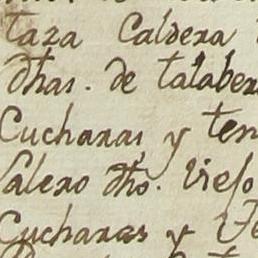 taza Caldera
dhas. de talaber
Cucharas y ten
Salero dho. viejo
Cucharas y te